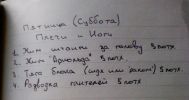 Пятница (Суббота)
Плечи и Ноги
1. Жим штанги за голову 5 потх.
2. Жим "Арнольда" 5 потх.
3. Тяга блока (сидя или ) 5 потх.
4. Разводка гантелей 5 потх.